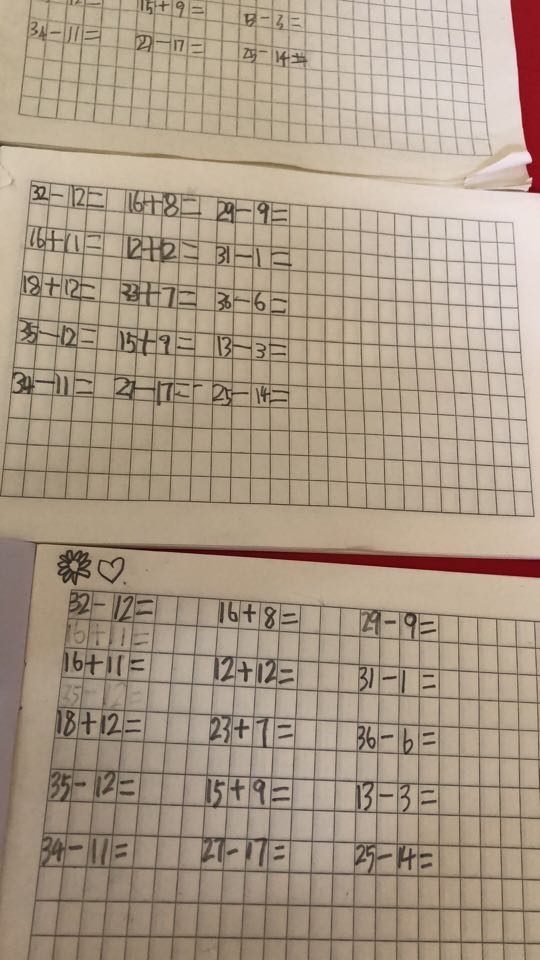 15+9= 13-3=
34-11= 27-17= 25-14=
32-12= 16+8= 29-9=
16+11= 12+12= 31-1=
18+12= 33+7= 36-6=
35-12= 15+9= 13-3=
34-11= 27-17= 25-14=
32-12= 16+8= 29-9=
16+11=
16+11= 12+12= 31-1=
35-12=
18+12= 23+7= 36-6=
35-12= 15+9= 13-3=
34-11= 27-17= 25-14=